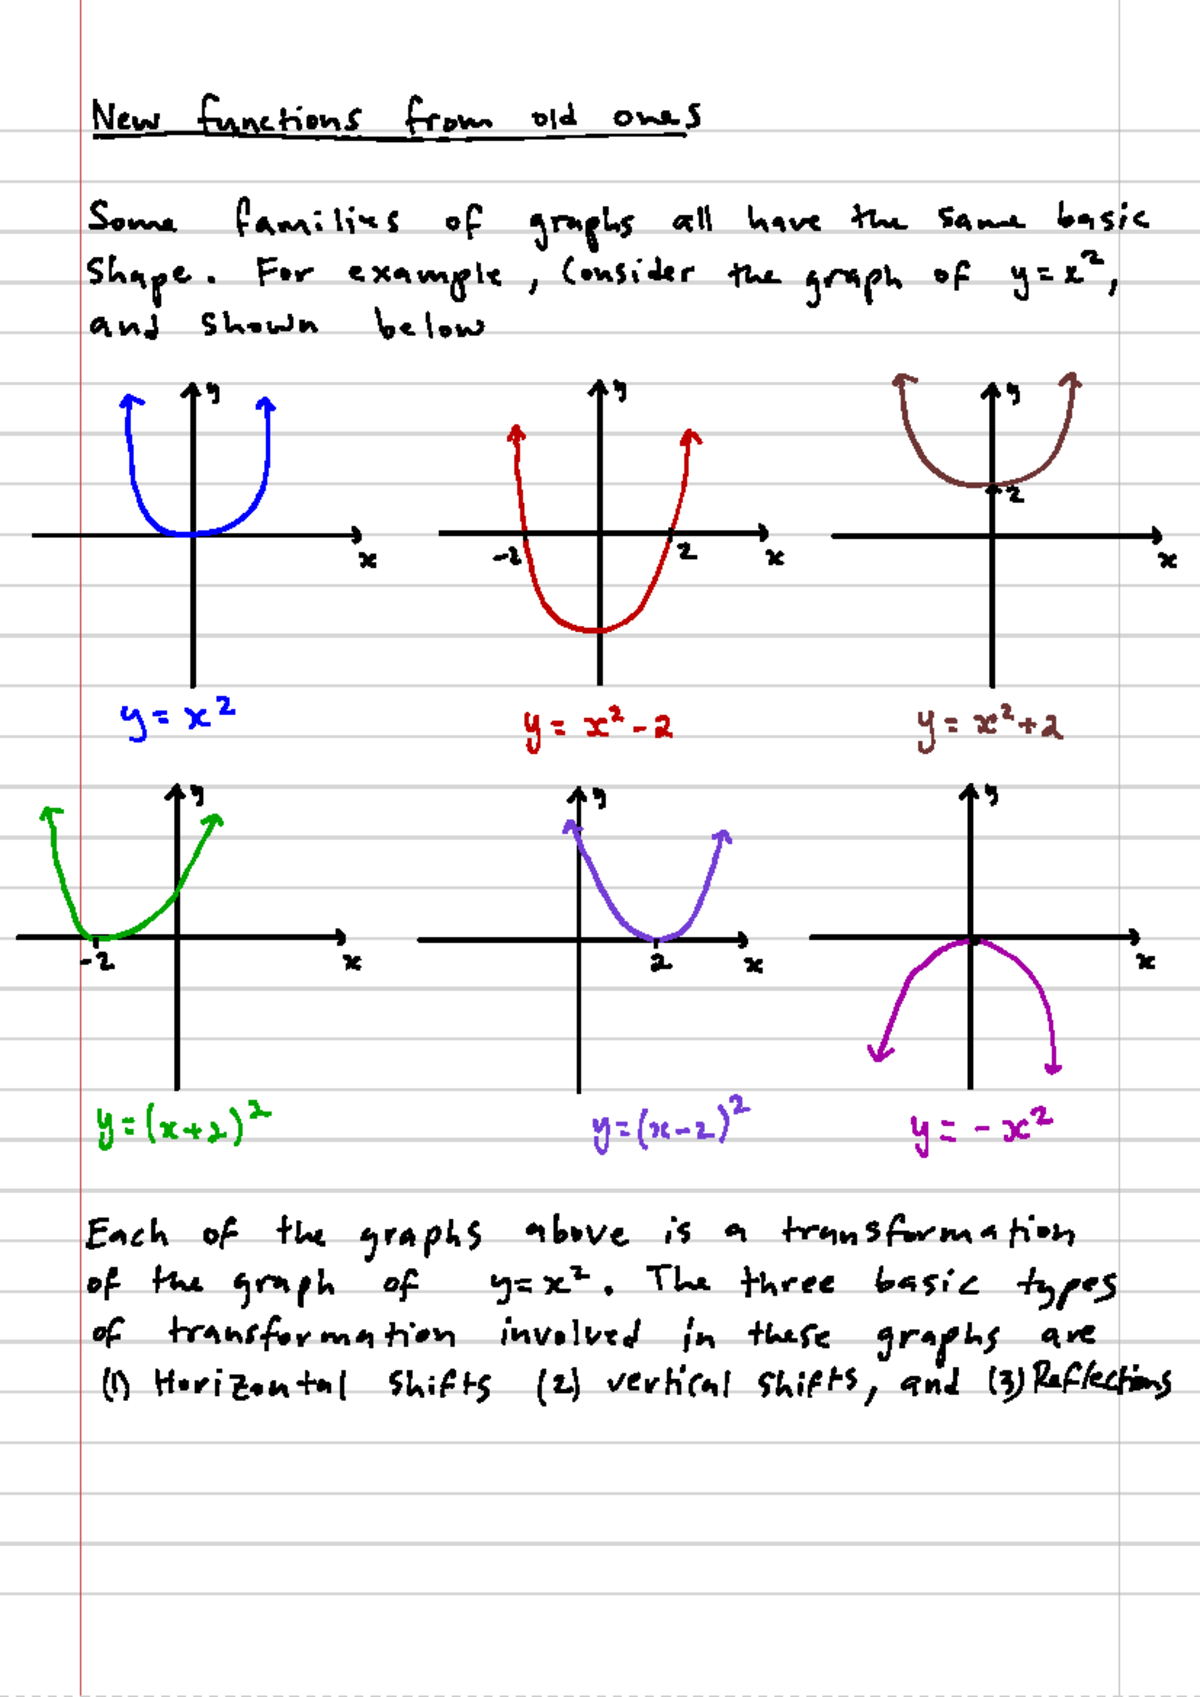 New functions from old ones
Some families of graphs all have the same basic
shape. For example, consider the graph of y=x²,
and shown below
y y y
x -2 2 x 2 x
y=x² y=x²-2 y=x²+2
y y y
-2 x 2 x x
y=(x+2)² y=(x-2)² y=-x²
Each of the graphs above is a transformation
of the graph of y=x². The three basic types
of transformation involved in these graphs are
(1) Horizontal shifts (2) vertical shifts, and (3) Reflections